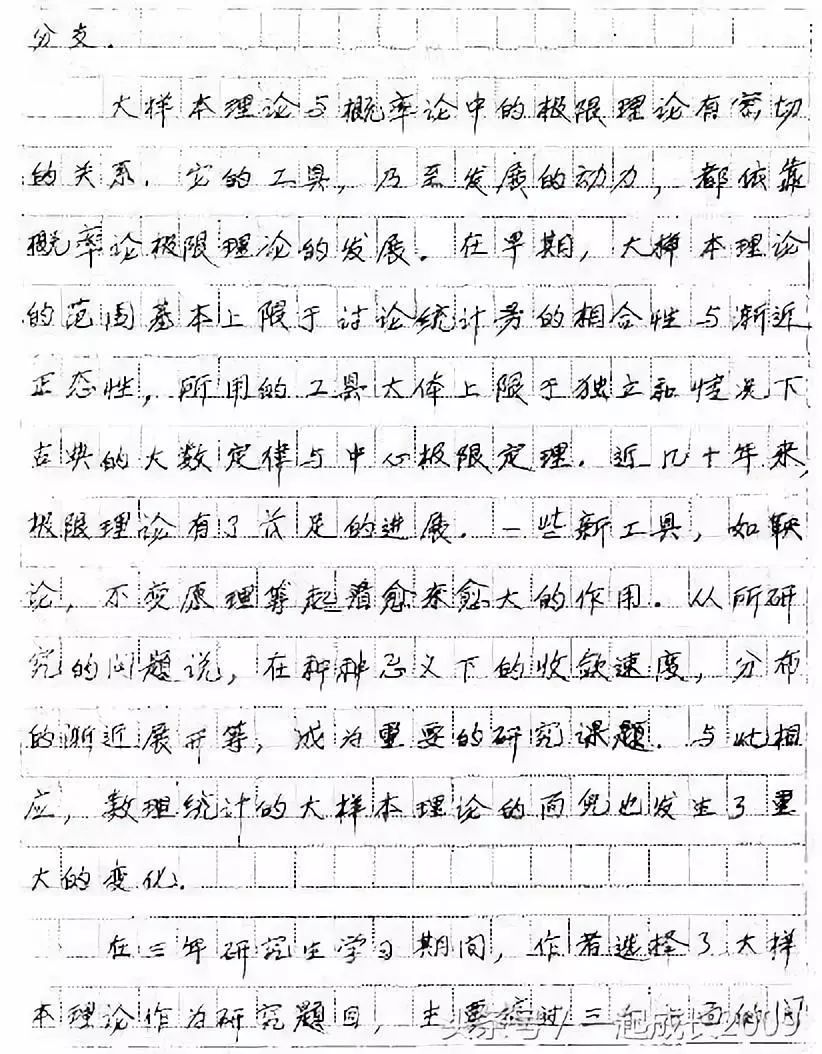 分支.
大样本理论与概率论中的极限理论有密切
的关系. 它的工具, 乃至发展的动力, 都依靠
概率论极限理论的发展. 在早期, 大样本理论
的范围基本上限于讨论统计量的相合性与渐近
正态性, 所用的工具大体上限于独立和情况下
古典的大数定律与中心极限定理. 近几十年来,
极限理论有了长足的进展. 一些新工具, 如鞅
论, 不变原理等起着愈来愈大的作用. 从所研
究的问题说, 在种种意义下的收敛速度, 分布
的渐近展开等, 成为重要的研究课题. 与此相
应, 数理统计的大样本理论的面貌也发生了重
大的变化.
在三年研究生学习期间, 作者选择了大样
本理论作为研究题目, 主要 三 面的问
头条号 / 一起成长2009